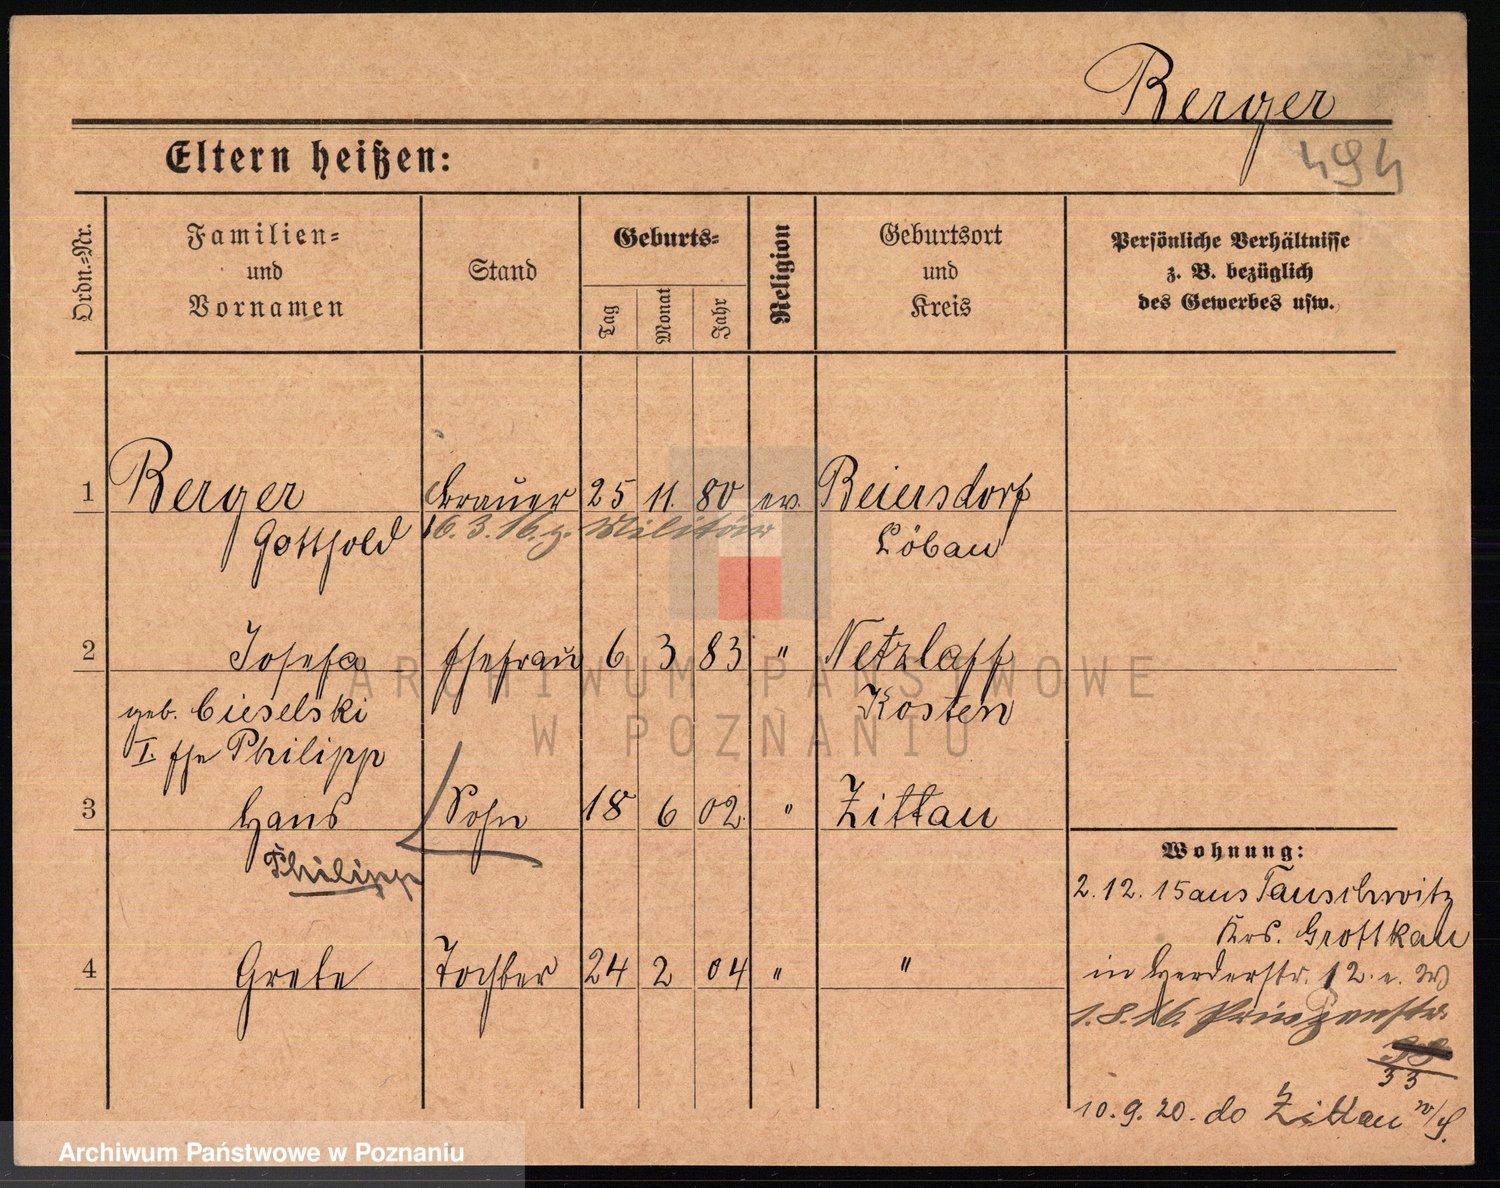 Berger
494
Eltern heißen:
Ordn.=Nr.
Familien= und Vornamen
Stand
Geburts=
Tag
Monat
Jahr
Religion
Geburtsort und Kreis
Persönliche Verhältnisse
z. B. bezüglich
des Gewerbes usw.
1 Berger Brauer 25 11. 80 ev. Beiersdorf
Gotthold 16.3.16. z. Militär Löbau
2 Josefa Ehefrau 6 3 83 " Netzlaff
geb. Cieselski Kosten
I. Ehe Philipp
3 Hans Sohn 18 6 02. " Zittau
Philipp
4 Grete Tochter 24 2 04 " "
Wohnung:
2.12.15 aus Tauschwitz
Krs. Grottkau
in Herderstr. 12. e. W
1.8.16. Prinzenstr.
33
10.9.20. do Zittau
ARCHIWUM PAŃSTWOWE
W POZNANIU
Archiwum Państwowe w Poznaniu